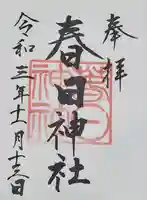 奉拝
春日神社
令和三年十一月十三日